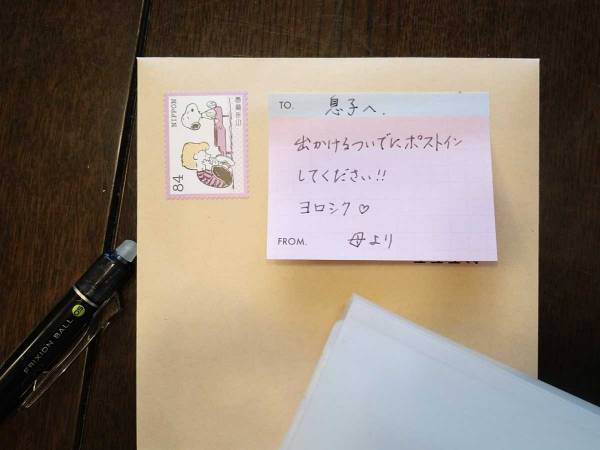 日本郵便
NIPPON
84
TO. 息子へ.
出かけるついでにポストイン
してください!!
ヨロシク♡
FROM. 母より
FRIXION BALL